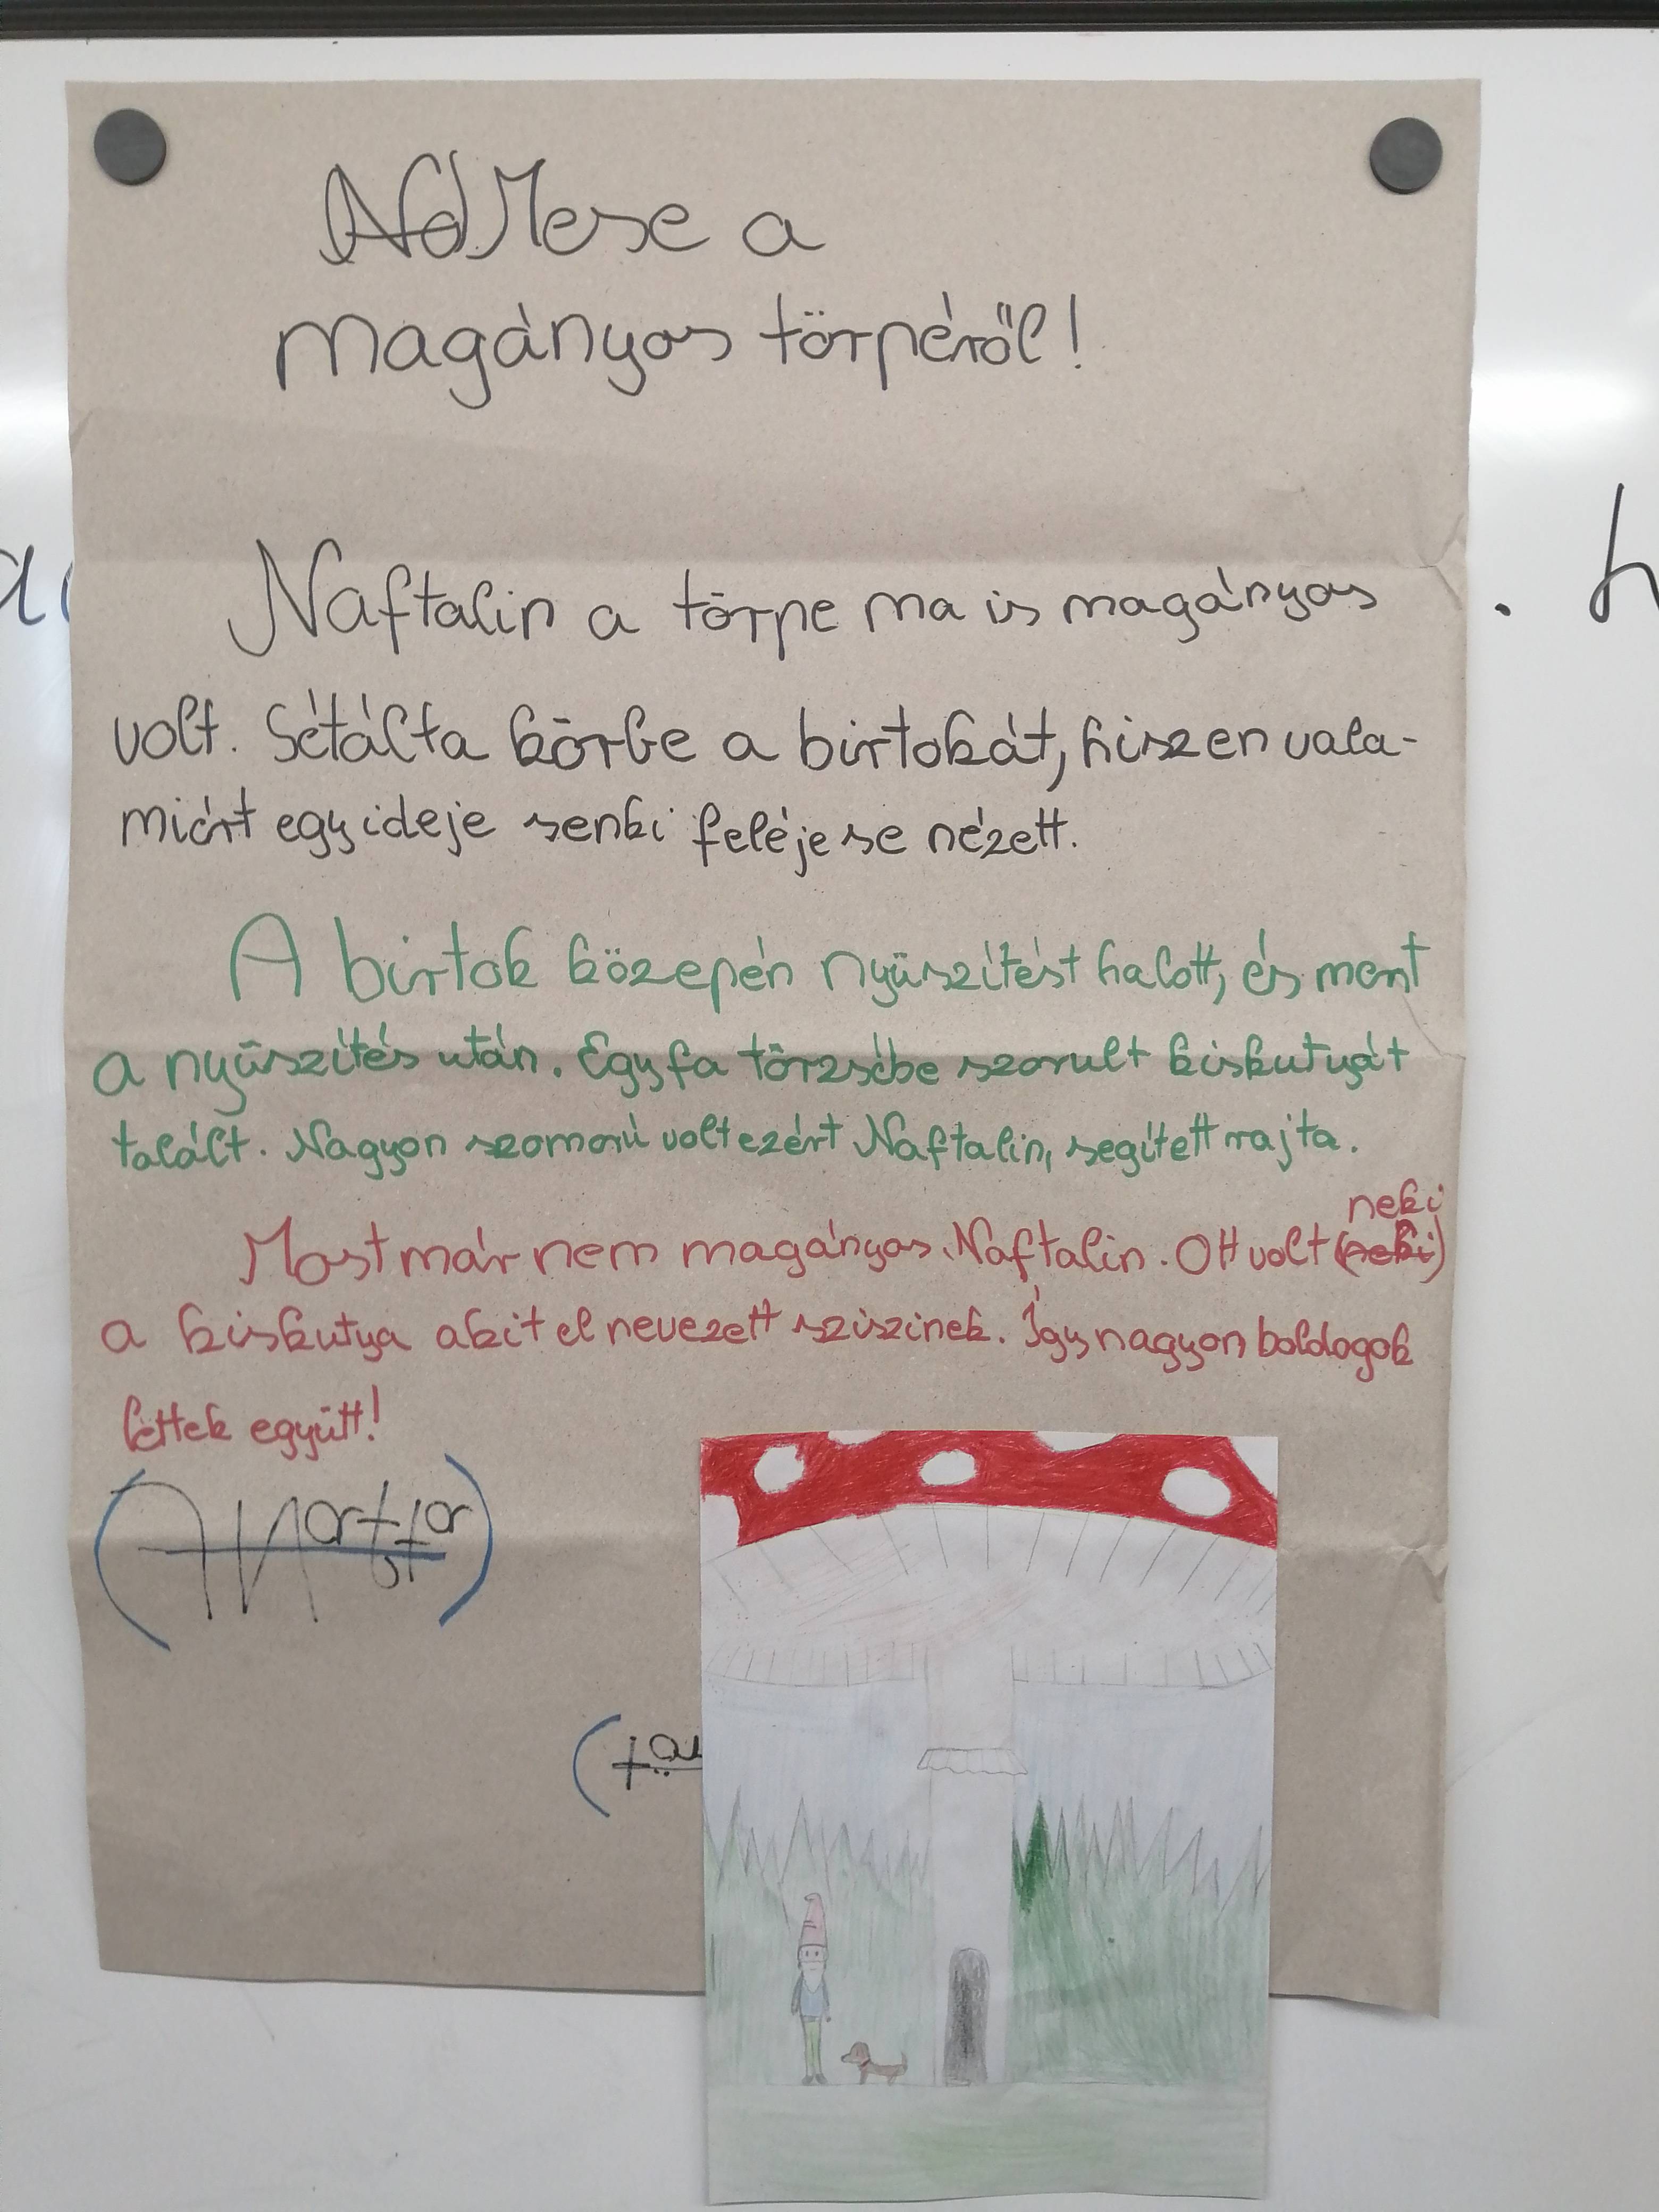 Mese a
magányos törpéről!
Naftalin a törpe ma is magányos
volt. Sétálta körbe a birtokát, hiszen vala-
miért egy ideje senki feléje se nézett.
A birtok közepén nyüszítést halott, és ment
a nyüszítés után. Egy fa törzsébe szorult kiskutyát
talált. Nagyon szomorú volt ezért Naftalin, segített rajta.
neki
Most már nem magányos Naftalin. Ott volt (neki)
a kiskutya akit el nevezett sziszinek. Így nagyon boldogok
lettek együtt!